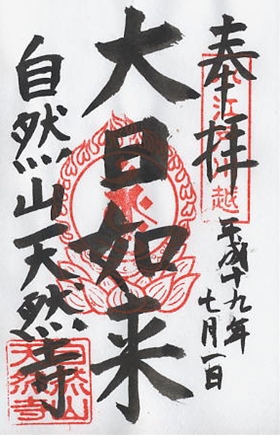 奉拝
平成十九年
七月一日
大日如来
自然山天然寺
自然山
天然寺